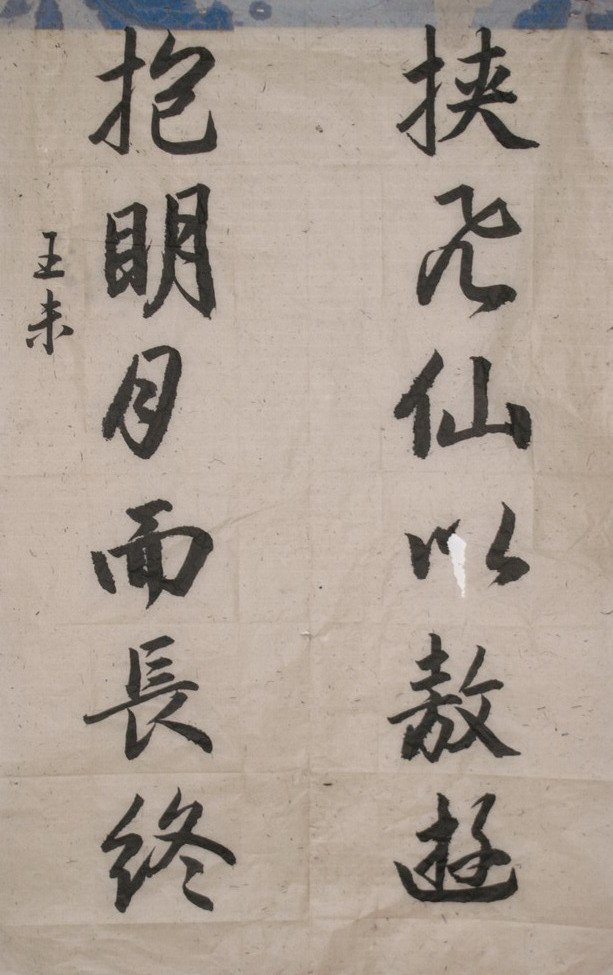 挟飞仙以敖遊
抱明月而長终
王未